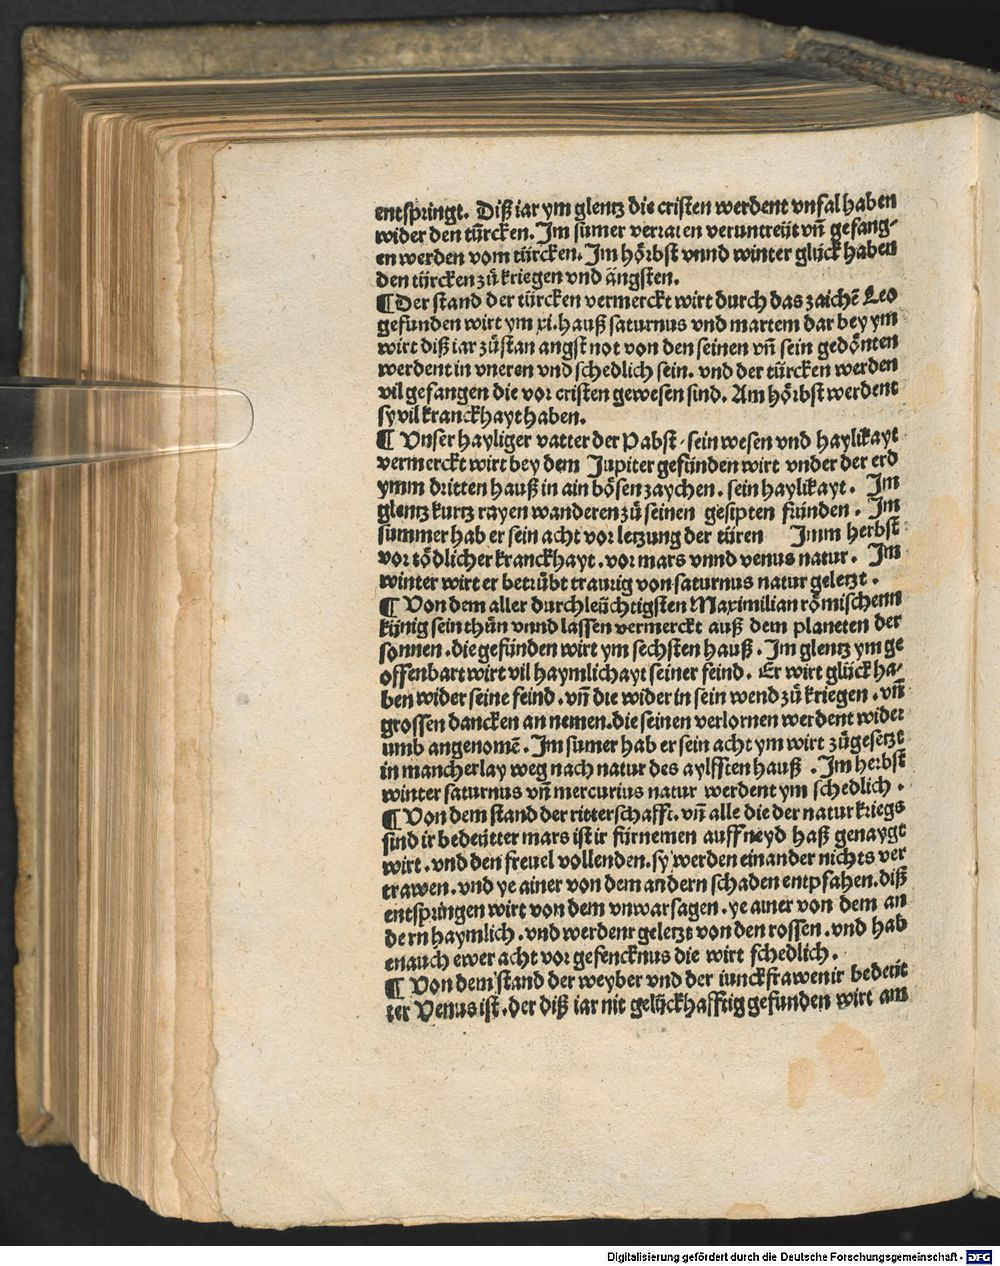 entspringt. Diß iar ym glentz die cristen werdent vnfal haben
wider den türcken. Im sumer verraten veruntreüt vñ gefang⸗
en werden vom türcken. Im hörbst vnnd winter glück haben
den türcken zů kriegen vnd ängsten.
¶ Der stand der türcken vermerckt wirt durch das zaichē Leo
gefunden wirt ym xi. hauß saturnus vnd martem dar bey ym
wirt diß iar zůstan angst not von den seinen vñ sein gedönten
werdent in vneren vnd schedlich sein. vnd der türcken werden
vil gefangen die vor cristen gewesen sind. Am hörbst werdent
sy vil kranckhayt haben.
¶ Vnser hayliger vatter der Pabst. sein wesen vnd haylikayt
vermerckt wirt bey dem Jupiter gefunden wirt vnder der erd
ymm dritten hauß in ain bösen zaychen. sein haylikayt. Im
glentz kurtz rayen wanderen zů seinen gesipten fründen. Im
summer hab er sein acht vor letzung der türen Imm herbst
vor tödlicher kranckhayt. vor mars vnnd venus natur. Im
winter wirt er betrübt traurig von saturnus natur geletzt.
¶ Von dem aller durchleüchtigsten Maximilian römischenn
künig sein thůn vnnd lassen vermerckt auß dem planeten der
sonnen. die gefunden wirt ym sechsten hauß. Im glentz ym ge
offenbart wirt vil haymlichayt seiner feind. Er wirt glück ha⸗
ben wider seine feind. vñ die wider in sein wend zů kriegen. vñ
grossen dancken an nemen. die seinen verlornen werdent wider
umb angenomē. Im sumer hab er sein acht ym wirt zůgesetzt
in mancherlay weg nach natur des aylfften hauß. Im herbst
winter saturnus vñ mercurius natur werdent ym schedlich.
¶ Von dem stand der ritterschafft. vñ alle die der natur kriegs
sind ir bedeütter mars ist ir fürnemen auff neyd haß genaygt
wirt. vnd den freuel vollenden. sy werden einander nichts ver
trawen. vnd ye ainer von dem andern schaden entpfahen. diß
entspringen wirt von dem vnwarsagen. ye ainer von dem an
dern haymlich. vnd werdent geletzt von den rossen. vnd hab
en auch ewer acht vor gefencknus die wirt schedlich.
¶ Von dem stand der weyber vnd der iunckfrawen ir bedeüt
ter Venus ist. der diß iar nit gelückhafftig gefunden wirt am
Digitalisierung gefördert durch die Deutsche Forschungsgemeinschaft - DFG